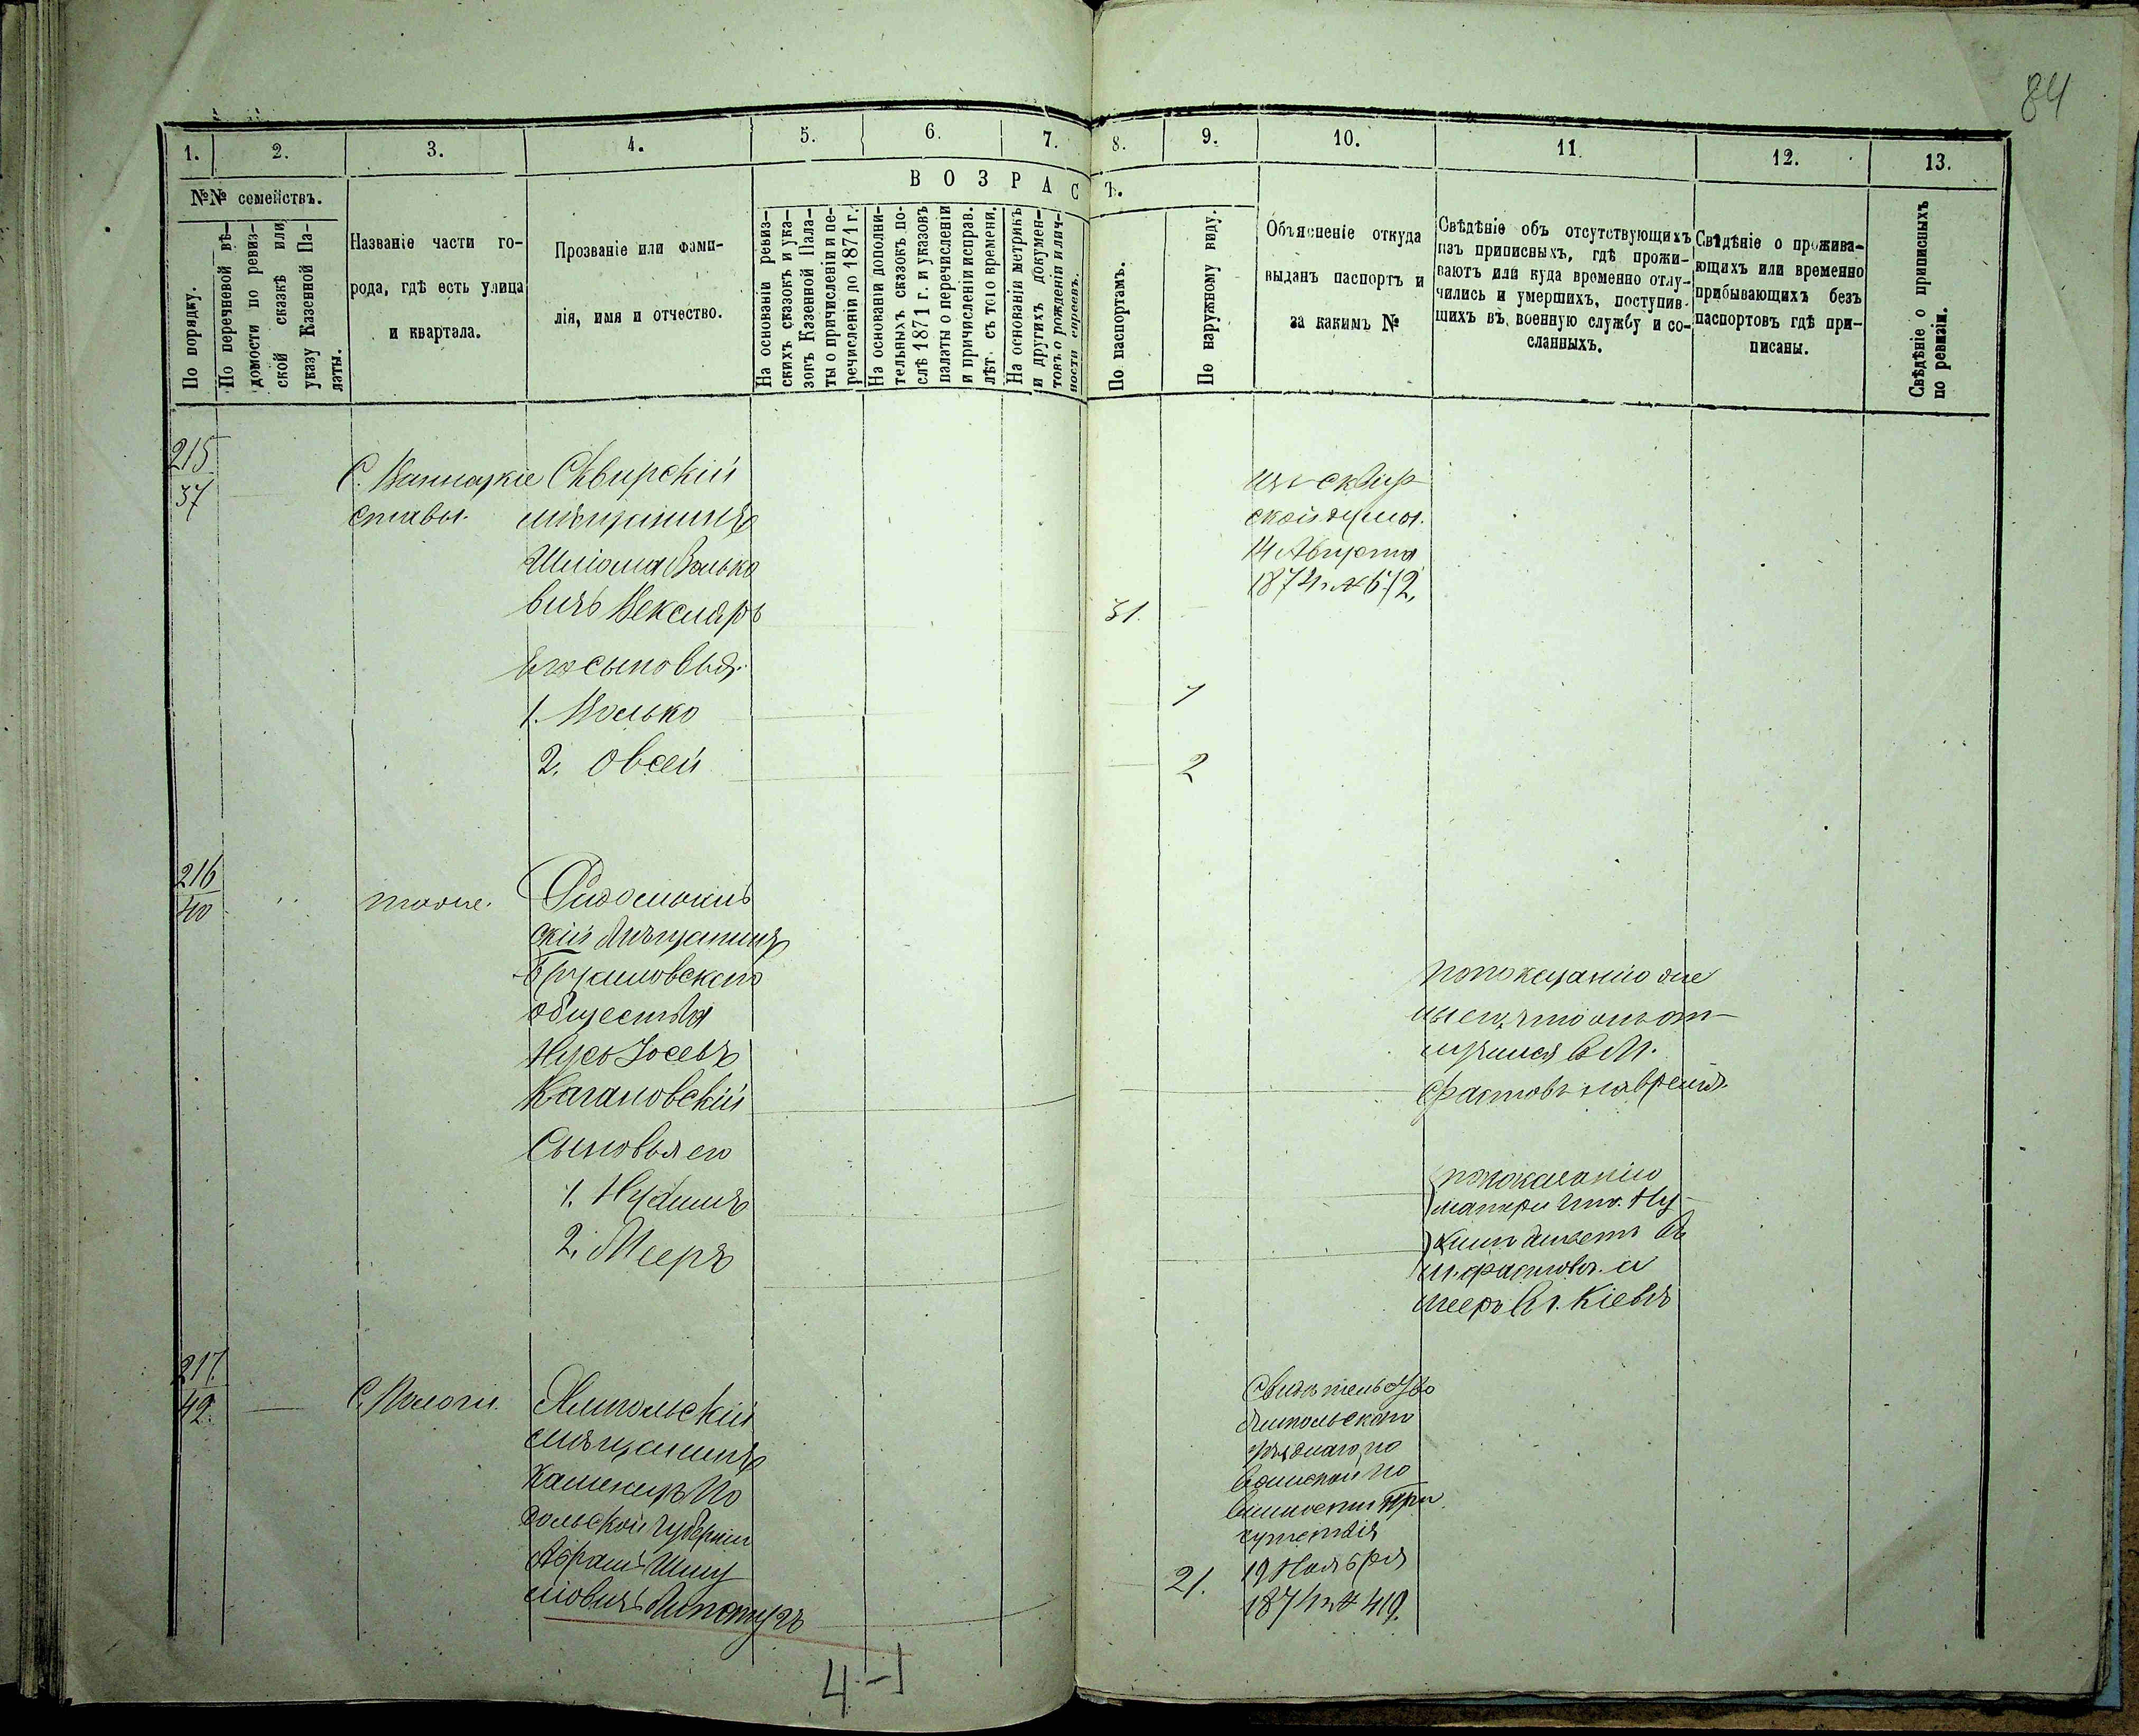 84
1.
2.
3.
4.
5.
6.
7.
8.
9.
10.
11.
12.
13.
№№ семействъ.
ВОЗРАСТЪ.
По порядку.
По перечневой вѣ-
домости по ревиз-
ской сказкѣ или
указу Казенной Па-
латы.
Названіе части го-
рода, гдѣ есть улица
и квартала.
Прозваніе или фами-
лія, имя и отчество.
На основаніи ревиз-
скихъ сказокъ и ука-
зовъ Казенной Пала-
ты о причисленіи и пе-
речисленіи до 1871 г.
На основаніи дополни-
тельныхъ сказокъ по-
слѣ 1871 г. и указовъ
палаты о перечисленіи
и причисленіи исправ.
лѣт. съ того времени.
На основаніи метрикъ
и другихъ докумен-
товъ о рожденіи и лич-
ности евреевъ.
По паспортамъ.
По наружному виду.
Объясненіе откуда
выданъ паспортъ и
за какимъ №
Свѣдѣніе объ отсутствующихъ
изъ приписныхъ, гдѣ прожи-
ваютъ или куда временно отлу-
чились и умершихъ, поступив-
шихъ въ военную службу и со-
сланныхъ.
Свѣдѣніе о прожива-
ющихъ или временно
прибывающихъ безъ
паспортовъ гдѣ при-
писаны.
Свѣдѣніе о приписныхъ
по ревизіи.
215
37
С.
ставы.
Сквирскій
мѣщанинъ
Шліома Волько
вичъ Векслеръ
Его сыновья
1. Волько
2. Овсей
31.
1
2
изъ сквир
ской думы.
14 Августа
1874 г. № 672.
216
40
тоже.
Радомысль
скій Мѣщанинъ
Брусиловскаго
общества
Нусь Іосевъ
Кагановскій
Сыновья его
1. Нухимъ
2. Мееръ
по показанію же
ны его,
въ М.
Фастовъ на время.
по показанію
матери что Ну
химъ живетъ въ
м. фастовѣ а
Мееръ въ г. Кіевѣ
217
42.
С. Пологи.
Ямпольскій
мѣщанинъ
Каменецъ По
дольской губерніи
Абрамъ Шму
ловичъ
21.
Свидѣтельство
Ямпольскаго
уѣзднаго по
воинской по
винности При
сутствія
19 Ноября
1874 г. № 419.
4-1